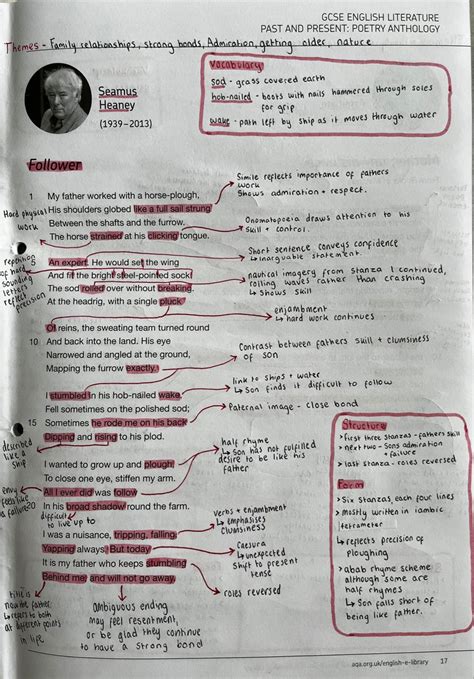 GCSE ENGLISH LITERATURE
PAST AND PRESENT: POETRY ANTHOLOGY
Themes - Family relationships, strong bonds, Admiration, getting older, nature
Vocabulary
sod - grass covered earth
hob-nailed - boots with nails hammered through soles
for grip
wake - path left by ship as it moves through water
Seamus
Heaney
(1939–2013)
Follower
Simile reflects importance of fathers
work
Shows admiration + respect.
1 My father worked with a horse-plough,
His shoulders globed like a full sail strung
Between the shafts and the furrow.
The horse strained at his clicking tongue.
Hard physical
work
Onomatopoeia draws attention to his
skill + control.
5 An expert. He would set the wing
And fit the bright steel-pointed sock.
The sod rolled over without breaking.
At the headrig, with a single pluck
repetition
of hard
sounding
letters
reflect
precision
Short sentence conveys confidence
↳ inarguable statement.
nautical imagery from stanza 1 continued,
rolling waves rather than crashing
↳ Shows skill
enjambment
↳ hard work continues
Of reins, the sweating team turned round
10 And back into the land. His eye
Narrowed and angled at the ground,
Mapping the furrow exactly.
Contrast between fathers skill + clumsiness
of son
I stumbled in his hob-nailed wake,
Fell sometimes on the polished sod;
15 Sometimes he rode me on his back
Dipping and rising to his plod.
link to ships + water
↳ Son finds it difficult to follow
Paternal image - close bond
described
like a
ship
I wanted to grow up and plough,
To close one eye, stiffen my arm.
All I ever did was follow
20 In his broad shadow round the farm.
half rhyme
↳ Son has not fulfilled
desire to be like his
father
envy
feels like
a failure
difficult
to live up to
I was a nuisance, tripping, falling,
Yapping always. But today
It is my father who keeps stumbling
Behind me, and will not go away.
Verbs + enjambment
↳ emphasises
clumsiness
Caesura
↳ unexpected
Shift to present
tense
roles reversed
title is
now the father
↳ refers to both
at different points
in life
Ambiguous ending
may feel resentment,
or be glad they continue
to have a strong bond
Structure
› first three stanzas - fathers skill
› next two - sons admiration
+ failure
› last stanza - roles reversed
Form
› Six stanzas, each four lines
› mostly written in iambic
tetrameter
↳ reflects precision of
ploughing
› abab rhyme scheme
although some are
half rhymes
↳ Son falls short of
being like father.
aqa.org.uk/english-e-library 17